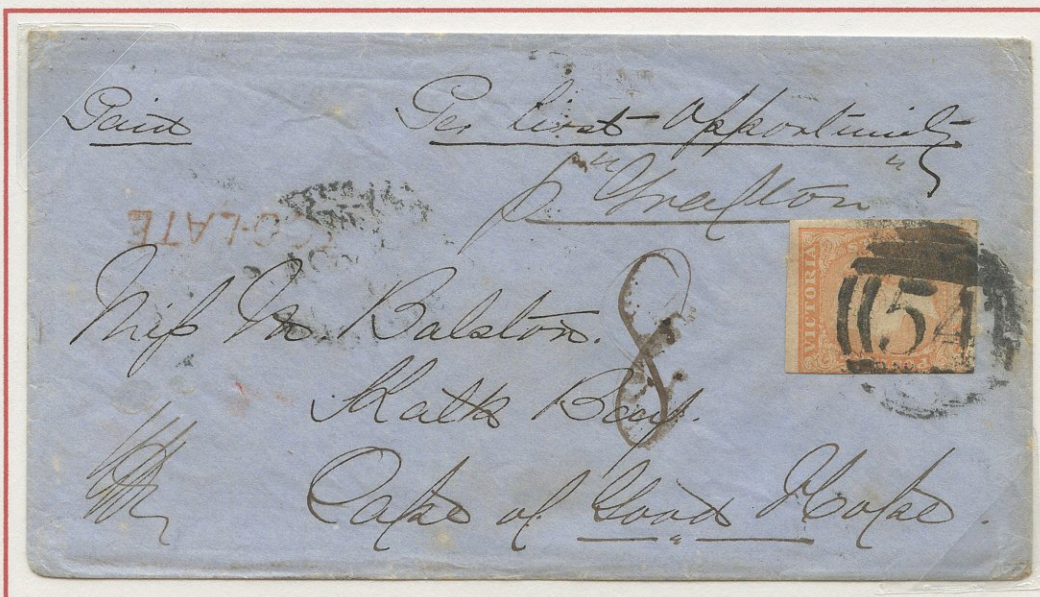 Paid
Per first opportunity
p "Grafton"
TOO-LATE
8
VICTORIA
54
Miss M Balston.
Kalk Bay.
Cape of Good Hope.